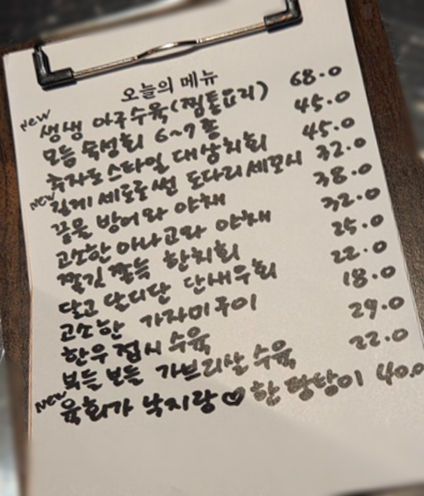 오늘의 메뉴
NEW 생생 아구수육(찜통요리) 68.0
모듬 숙성회 6~7종 45.0
추자도 스타일 대삼치회 45.0
NEW 길게 세로로 썬 도다리세꼬시 32.0
끝물 방어와 야채 38.0
고소한 아나고와 야채 32.0
쫄깃쫄득 한치회 25.0
달고 단디단 단새우회 22.0
고소한 가자미구이 18.0
한우 접시 수육 29.0
보들보들 가브리살 수육 22.0
NEW 육회가 낙지랑♡한 탕탕이 40.0